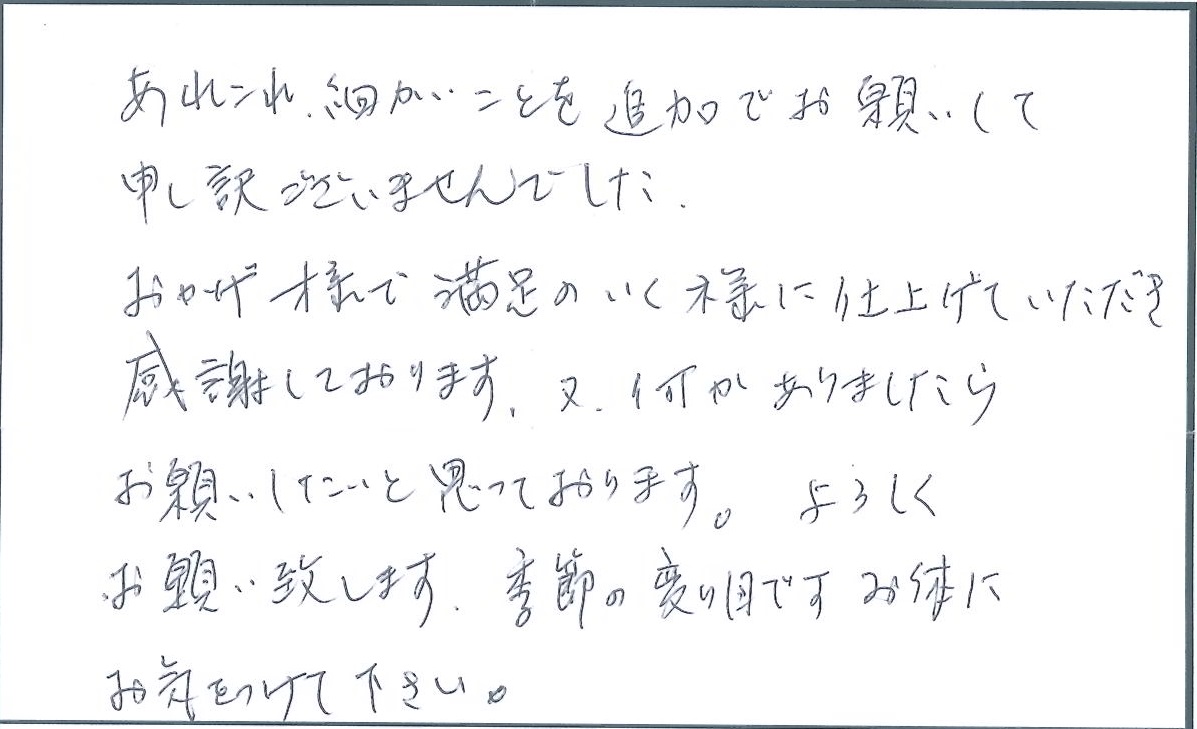 あれこれ、細かいことを追加でお願いして
申し訳ございませんでした.
おかげ様で満足のいく様に仕上げていただき
感謝しております. 又. 何かありましたら
お願いしたいと思っております。よろしく
お願い致します. 季節の変り目ですお体に
お気をつけて下さい。